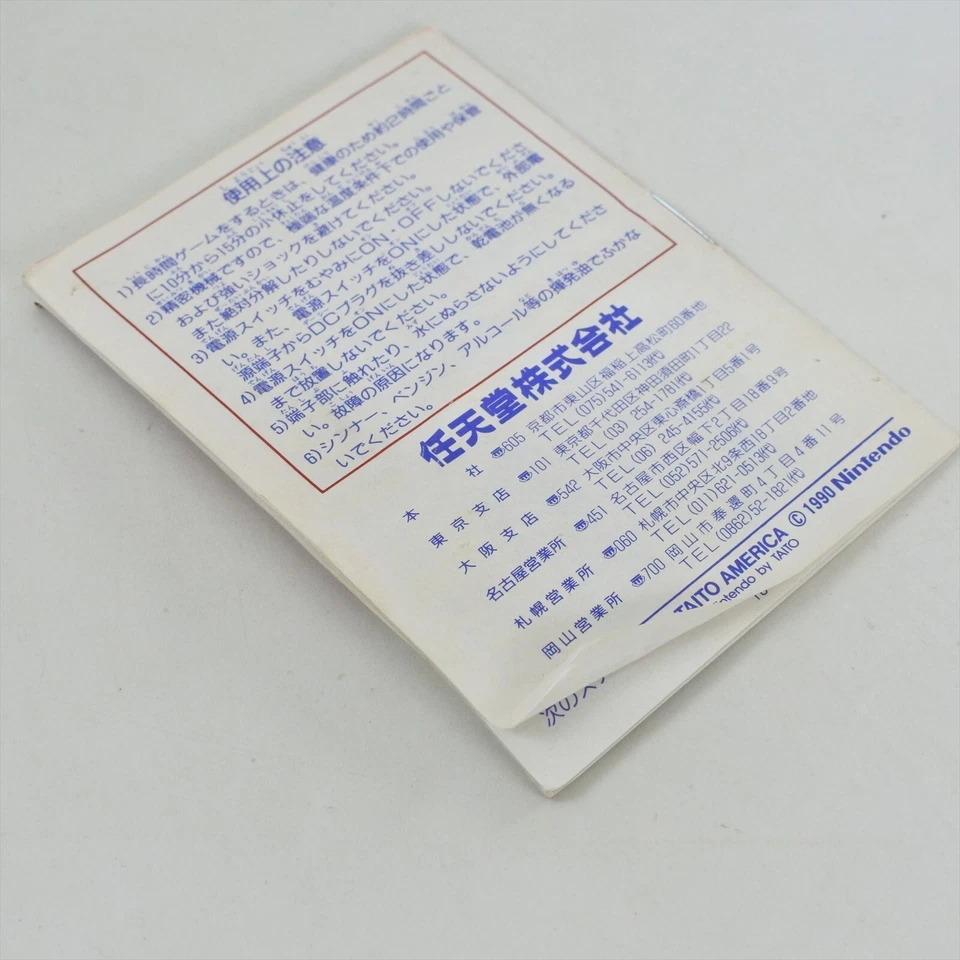 使用上の注意
1)長時間ゲームをするときは、健康のため約2時間ごと
に10分から15分の小休止をしてください。
2)精密機械ですので、極端な温度条件下での使用や保管
および強いショックを避けてください。
また絶対分解したりしないでください。
3)電源スイッチをむやみにON・OFFしないでくださ
い。また、電源スイッチをONにした状態で、外部電
源端子からDCプラグを抜き差ししないでください。
4)電源スイッチをONにした状態で、乾電池が無くなる
まで放置しないでください。
5)端子部に触れたり、水にぬらさないようにしてくださ
い。故障の原因になります。
6)シンナー、ベンジン、アルコール等の揮発油でふかな
いでください。
任天堂株式会社
本社 〒605 京都市東山区福稲上高松町60番地
TEL(075)541-6113代
東京支店 〒101 東京都千代田区神田須田町1丁目22
TEL(03)254-1781代
大阪支店 〒542 大阪市中央区東心斎橋1丁目5番1号
TEL(06)245-4155代
名古屋営業所 〒451 名古屋市西区幅下2丁目18番9号
TEL(052)571-2506代
札幌営業所 〒060 札幌市中央区北9条西18丁目2番地
TEL(011)621-0513代
岡山営業所 〒700 岡山市奉還町4丁目4番11号
TEL(0862)52-1821代
TAITO AMERICA © 1990 Nintendo
Nintendo by TAITO
次のス